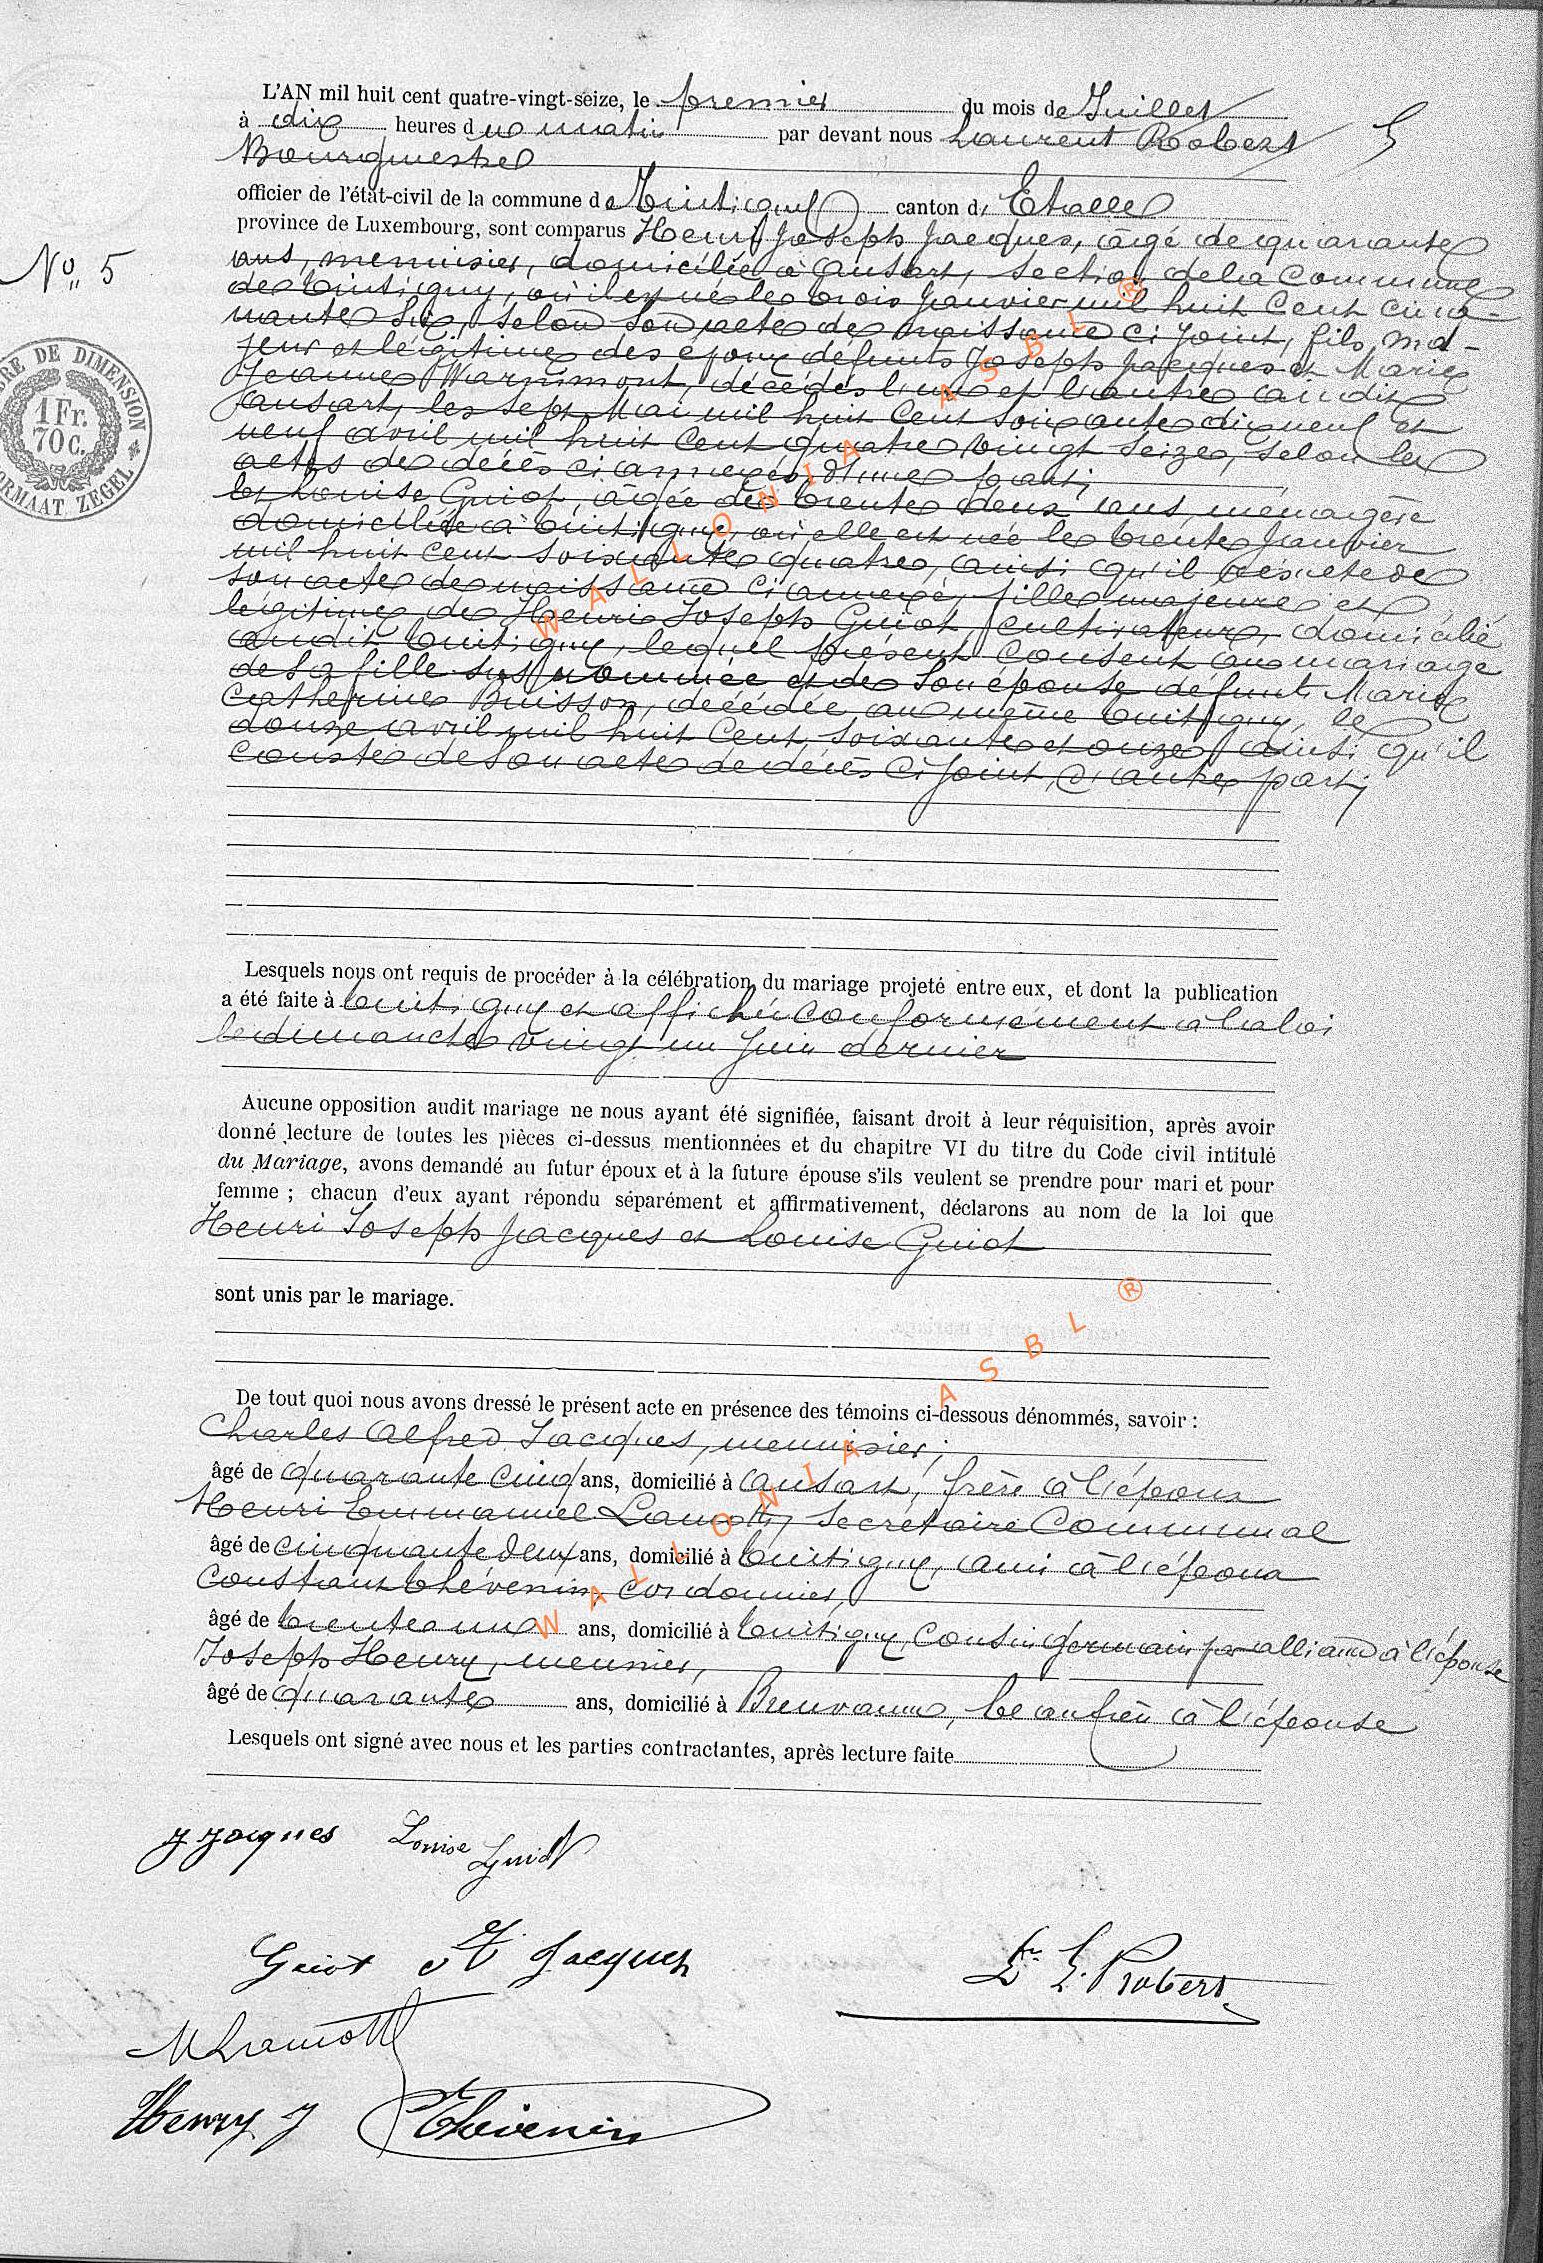 L'AN mil huit cent quatre-vingt-seize, le premier du mois de Juillet
à dix heures du matin par devant nous Laurent Robert
5
Bourgmestre
officier de l'état-civil de la commune de Tintigny canton d' Etalle
province de Luxembourg, sont comparus Henri Joseph Jacques, âgé de quarante
No 5
ans, menuisier, domicilié à Ansart, section de la Commune
de Tintigny, où il est né le trois Janvier mil huit cent cinq-
uante six, selon son acte de naissance ci joint, fils ma-
jeur et légitime des époux défunts Joseph Jacques et Marie
Jeanne Warnimont, décédés l'un et l'autre audit
Ansart, les sept Mai mil huit cent soixante dix neuf et
neuf avril mil huit cent quatre vingt seize, selon les
actes de décès ci annexés, d'une part;
Et Louise Guiot, âgée de trente deux ans, ménagère
domiciliée à Tintigny, où elle est née le trente Janvier
mil huit cent soixante quatre, ainsi qu'il résulte de
son acte de naissance ci annexé, fille majeure et
légitime de Henri Joseph Guiot, cultivateur, domicilié
audit Tintigny, lequel présent consent au mariage
de sa fille sus nommée et de son épouse défunte Marie
Catherine Buisson, décédée au même Tintigny, le
douze avril mil huit cent soixante et onze, ainsi qu'il
conste de son acte de décès ci joint, d'autre part;
TIMBRE DE DIMENSION
1 Fr.
70 C.
FORMAAT ZEGEL
Lesquels nous ont requis de procéder à la célébration du mariage projeté entre eux, et dont la publication
a été faite à Tintigny et affichée conformément à la loi
le dimanche vingt un Juin dernier
Aucune opposition audit mariage ne nous ayant été signifiée, faisant droit à leur réquisition, après avoir
donné lecture de toutes les pièces ci-dessus mentionnées et du chapitre VI du titre du Code civil intitulé
du Mariage, avons demandé au futur époux et à la future épouse s'ils veulent se prendre pour mari et pour
femme ; chacun d'eux ayant répondu séparément et affirmativement, déclarons au nom de la loi que
Henri Joseph Jacques et Louise Guiot
sont unis par le mariage.
De tout quoi nous avons dressé le présent acte en présence des témoins ci-dessous dénommés, savoir :
Charles Alfred Jacques, menuisier;
âgé de quarante cinq ans, domicilié à Ansart, frère à l'époux
Henri Emmanuel Lamotte, Secretaire Communal
âgé de cinquante deux ans, domicilié à Tintigny, ami à l'époux
Constant Thévenin, cordonnier,
âgé de trente un ans, domicilié à Tintigny, Cousin germain par alliance à l'épouse
Joseph Henry, meunier,
âgé de quarante ans, domicilié à Breuvanne, beau frère à l'épouse
Lesquels ont signé avec nous et les parties contractantes, après lecture faite
J Jacques Louise Guiot
Guiot A Jacques
Lt L. Robert
Lamotte
Henry J Thévenin
WALLONIA ASBL ®
WALLONIA ASBL ®